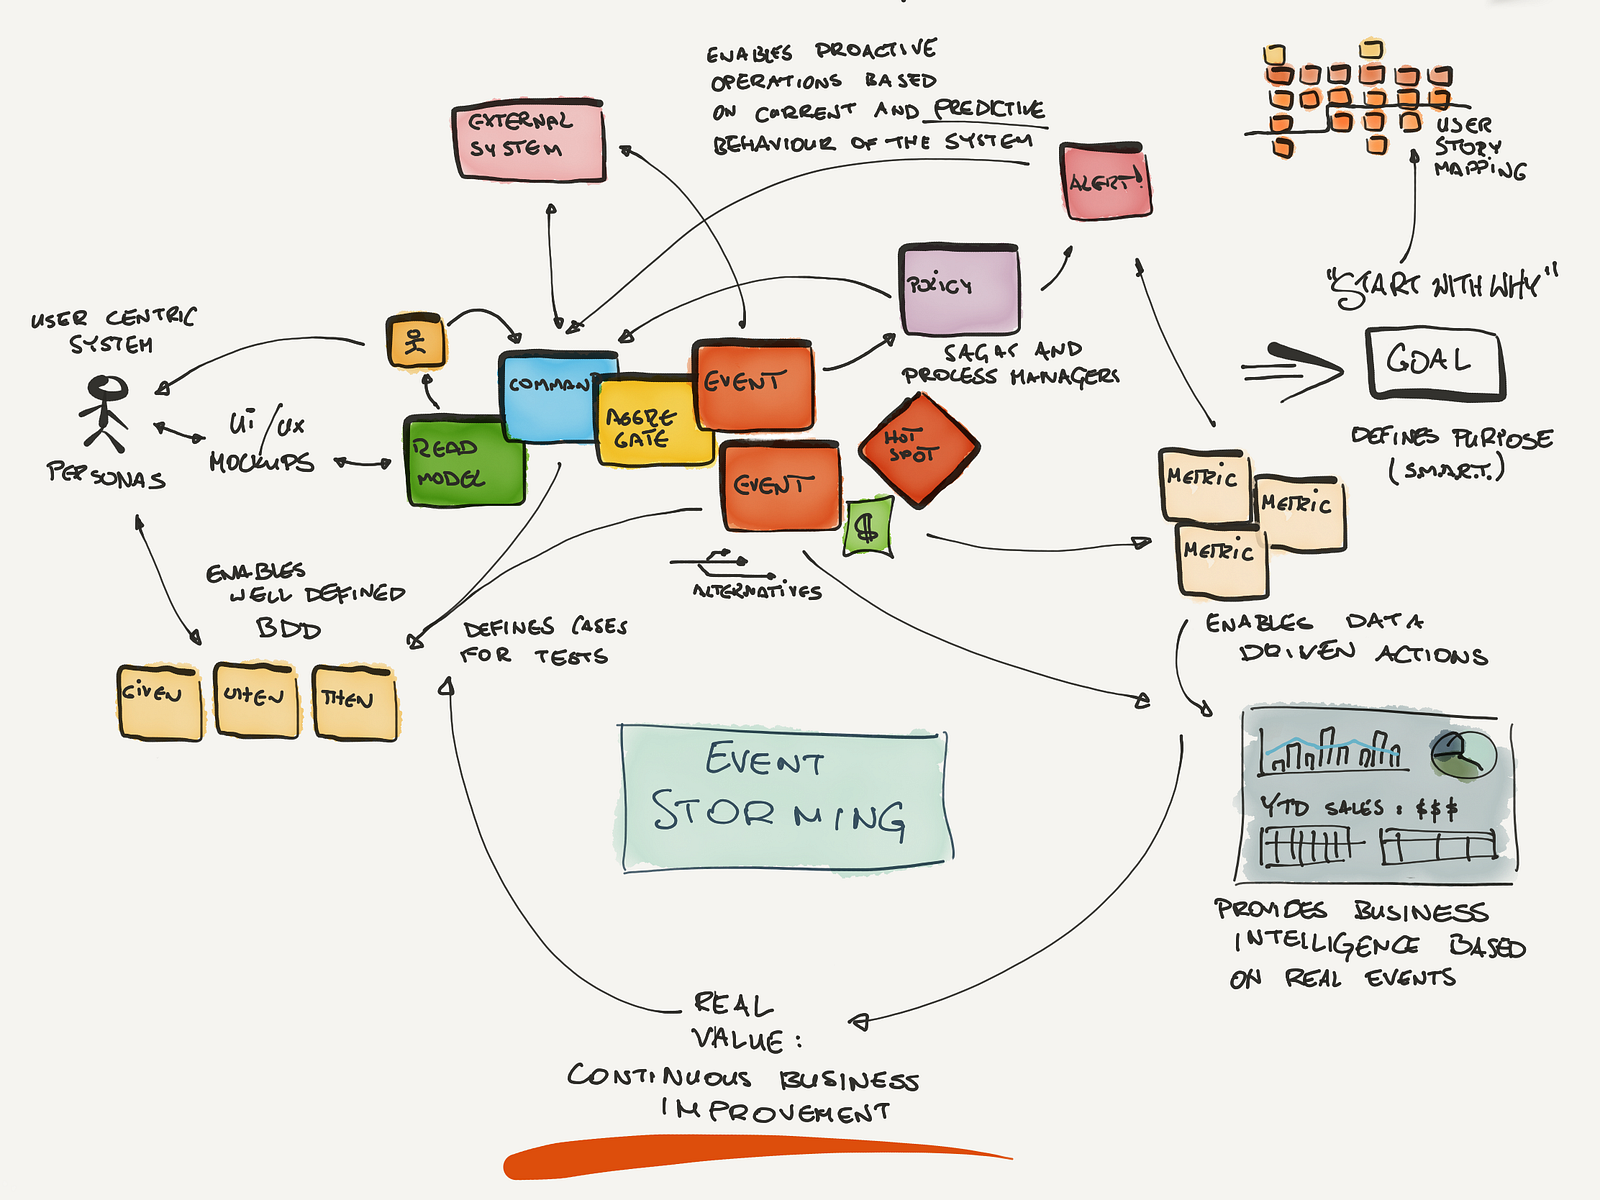 ENABLES PROACTIVE
OPERATIONS BASED
ON CURRENT AND PREDICTIVE
BEHAVIOUR OF THE SYSTEM
EXTERNAL
SYSTEM
ALERT!
USER
STORY
MAPPING
"START WITH WHY"
GOAL
DEFINES PURPOSE
(S.M.A.R.T.)
POLICY
SAGAS AND
PROCESS MANAGERS
USER CENTRIC
SYSTEM
PERSONAS
UI/UX
MOCKUPS
READ
MODEL
COMMAND
AGGRE
GATE
EVENT
EVENT
HOT
SPOT
$
ALTERNATIVES
METRIC
METRIC
METRIC
ENABLES DATA
DRIVEN ACTIONS
ENABLES
WELL DEFINED
BDD
GIVEN
WHEN
THEN
DEFINES CASES
FOR TESTS
EVENT
STORMING
YTD SALES: $$$
PROVIDES BUSINESS
INTELLIGENCE BASED
ON REAL EVENTS
REAL
VALUE:
CONTINUOUS BUSINESS
IMPROVEMENT